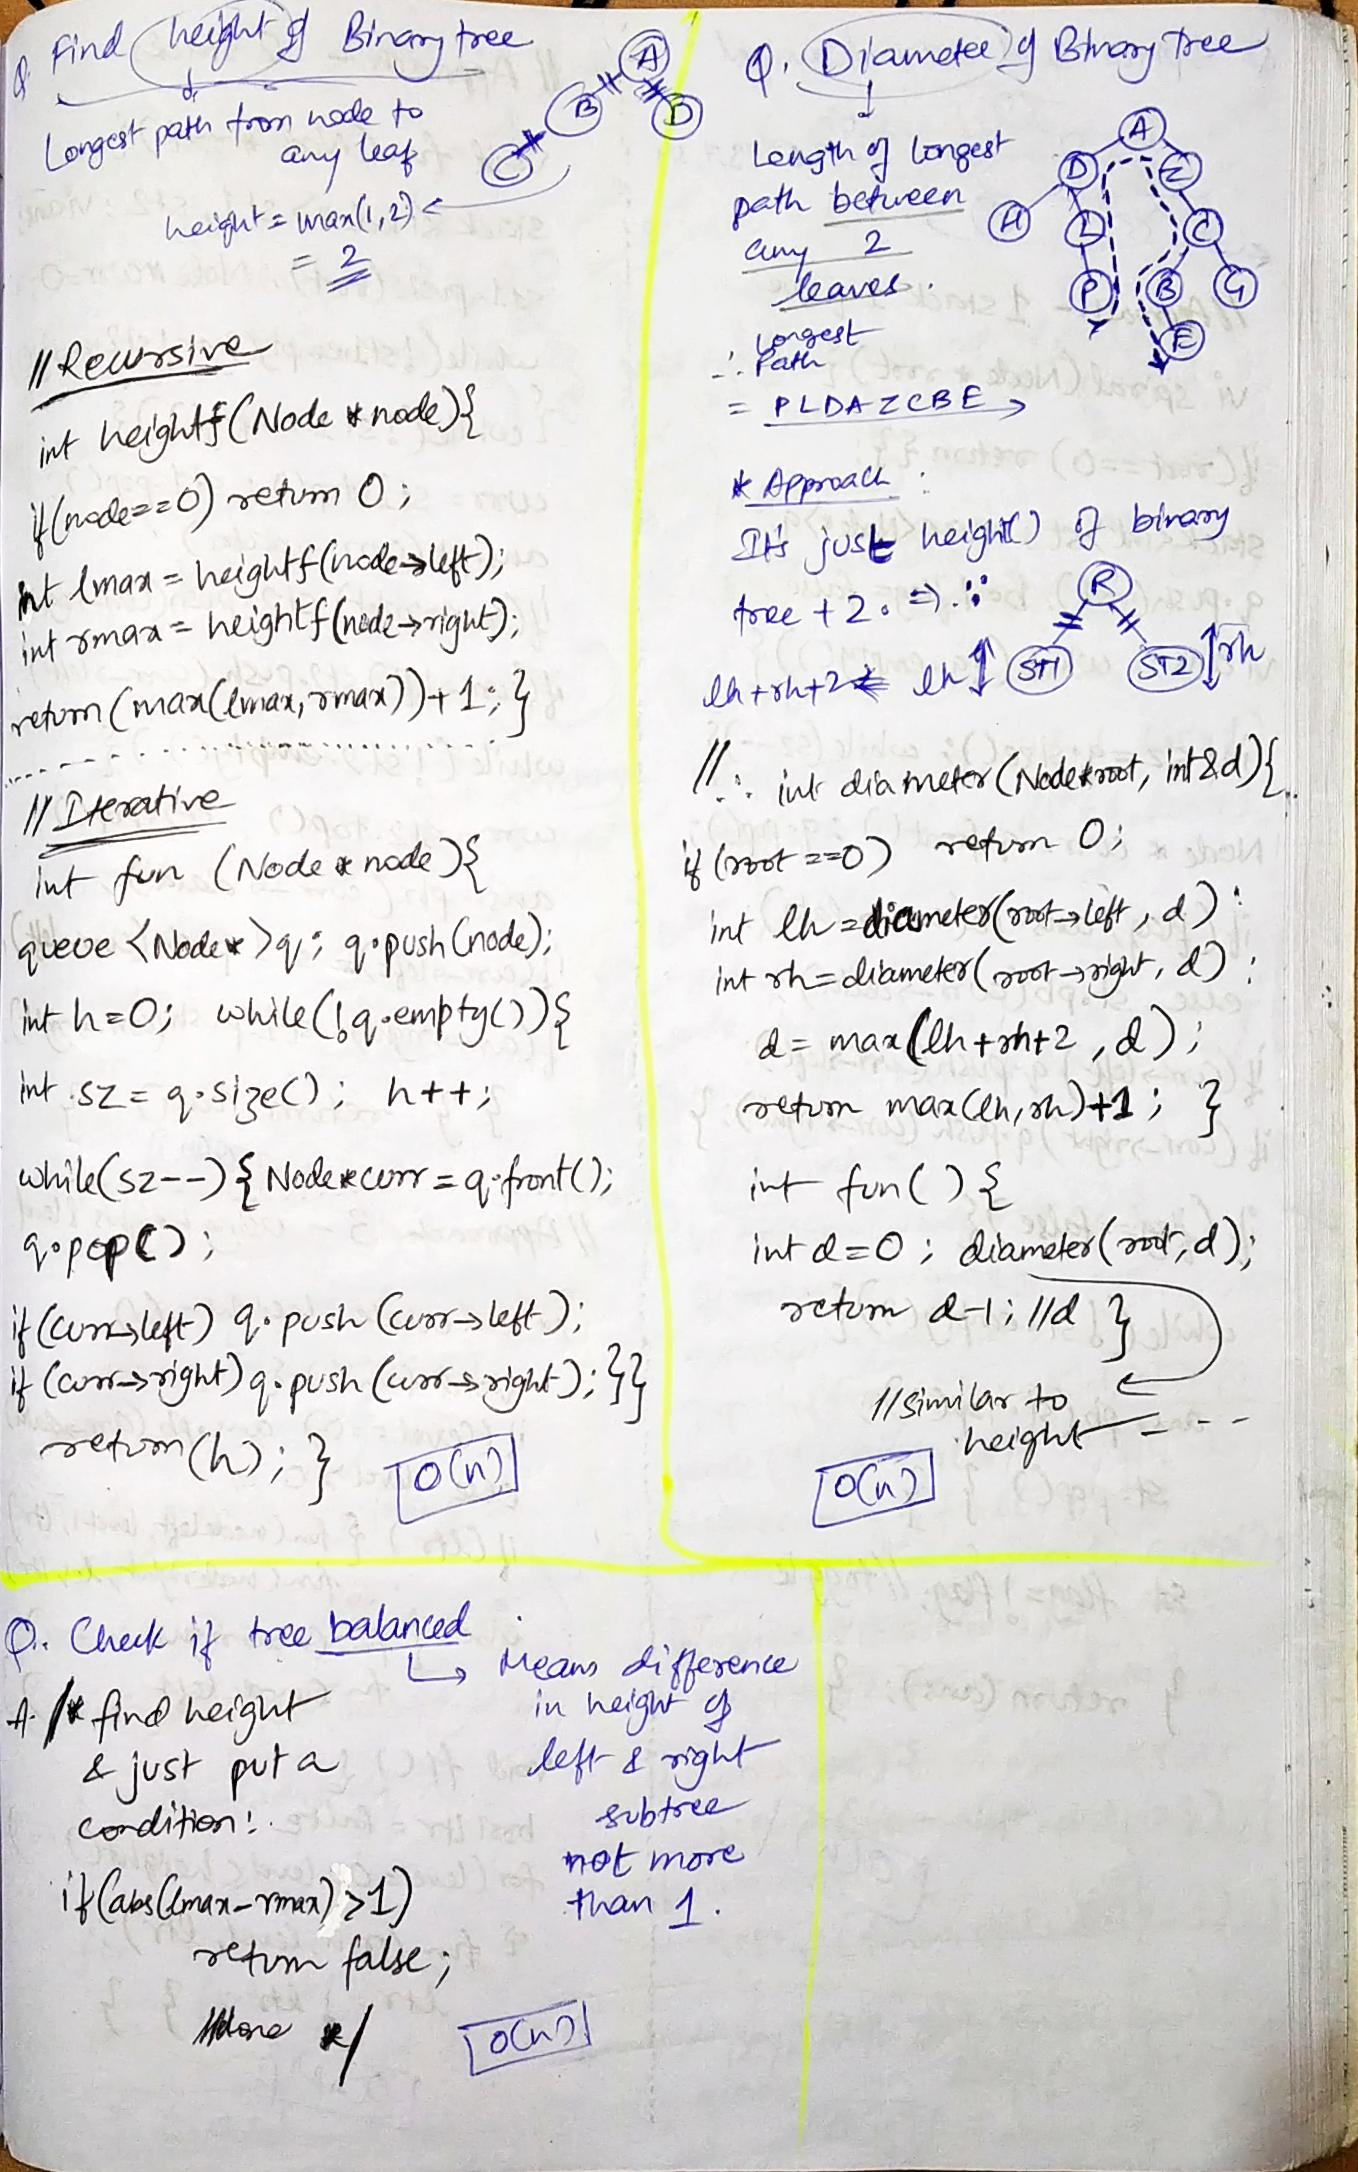 Q. Find height of Binary tree
Longest path from node to
any leaf
height = max(1,2)
= 2
A
B
D
C
// Recursive
int heightf(Node *node){
if(node==0) return 0;
int lmax = heightf(node->left);
int rmax = heightf(node->right);
return(max(lmax,rmax))+1; }
// Iterative
int fun (Node * node){
queue <Node*>q; q.push(node);
int h=0; while(!q.empty()){
int sz = q.size(); h++;
while(sz--){ Node*curr = q.front();
q.pop();
if(curr->left) q.push(curr->left);
if(curr->right) q.push(curr->right);}}
return(h); }
O(n)
Q. Diameter of Binary Tree
Length of longest
path between
any 2
leaves.
∴ Longest
Path
= PLDAZCBE
A
D
Z
A
L
C
P
B
G
E
* Approach :
It's just height() of binary
tree + 2. => ∵
R
lh+rh+2
lh
ST1
ST2
rh
// ∴ int diameter(Node*root, int&d){
if(root==0) return 0;
int lh=diameter(root->left, d);
int rh=diameter(root->right, d);
d= max(lh+rh+2, d);
return max(lh,rh)+1; }
int fun( ){
int d=0; diameter(root,d);
return d-1; //d }
// similar to
height - - -
O(n)
Q. Check if tree balanced
Means difference
in height of
left & right
subtree
not more
than 1.
A. /* find height
& just put a
condition:
if(abs(lmax-rmax)>1)
return false;
//done */
O(n)